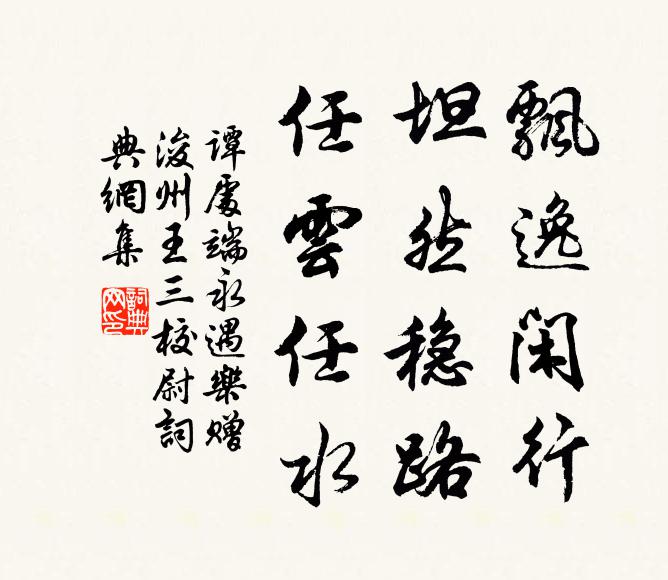 飄逸閑行
坦然穏路
任雲任水
譚處端永遇樂贈
浚州王三校尉詞
典網集
詞典网印